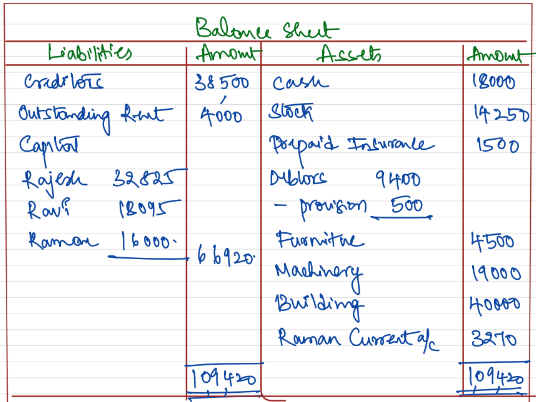 Balance Sheet
Liabilities Amount Assets Amount
Creditors 38500 Cash 18000
Outstanding Rent 4000 Stock 14250
Capital Prepaid Insurance 1500
Rajesh 32825 Debtors 9400
Ravi 18095 - provision 500
Raman 16000. 66920. Furniture 4500
Machinery 19000
Building 40000
Raman Current a/c 3270
109420 109420